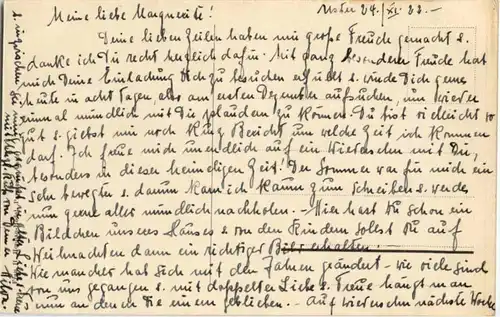 Meine liebe Marguerite! Uster 24. XI. 33.-
Deine lieben Zeilen haben mir große Freude gemacht &
danke ich Du recht herzlich dafür. Mit ganz besonderer Freude hat
mich Deine Einladung Dich zu besuchen erfüllt & würde Dich gerne
heute in acht Tagen, also am ersten Dezember aufsuchen, um wieder
einmal mündlich mit Dir plaudern zu können. Du bist vielleicht so
gut & giebst mir noch kurz Bericht um welche Zeit ich kommen
darf. Ich freue mich unendlich auf ein Wiedersehn mit Dir,
besonders in dieser heimeligen Zeit! Der Sommer war für mich ein
sehr bewegter & darum kam ich kaum zum schreiben & werde
nun gerne alles mündlich nachholen. - Hier hast Du schon ein
Bildchen unseres Hauses & von den Kindern sollst Du auf
Weihnachten dann ein richtiger Bild erhalten.
Wie mancher hat sich mit den Jahren geändert - wie viele sind
von uns gegangen & mit doppelter Liebe & Treue hängt man
nun an denen die einem geblieben. - Auf Wiedersehn nächste Woche